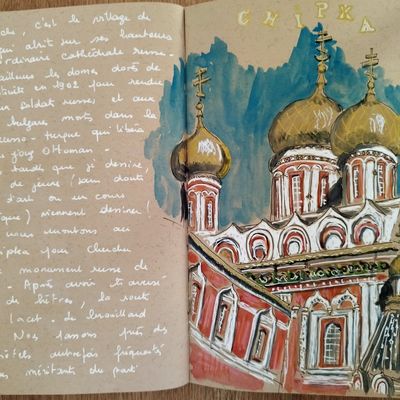 c'est le village de
qui abrit sur ses hauteurs
ordinaire cathédrale russe -
ailleurs les domes dorés de
struite en 1902 pour rendre
ux soldat russes et aux
bulgare morts dans la
usso - turque qui libéra
joug Ottoman -
tandis que je dessine,
de jeune (sans doute
d'art ou un cours
ique) viennent dessiner !
nous montons au
ipka pour chercher
monument russe de
- Après avoir traversé
de hêtres, la route
lacet - le brouillard
Nous passons près des
hôtels autrefois fréquentés
es méritants du parti
CHIPKA